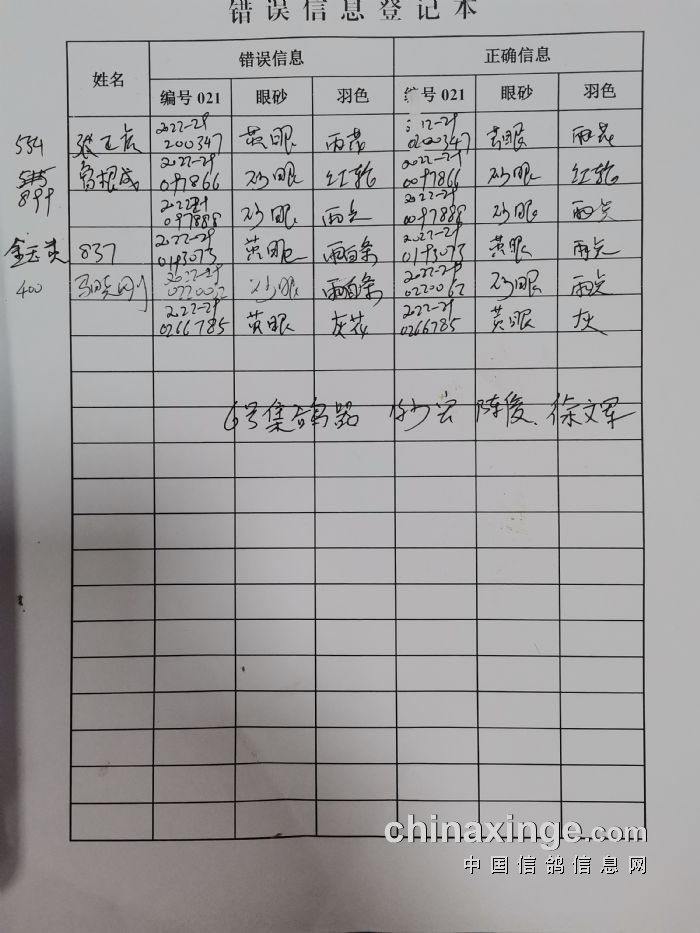 错误信息登记本
姓名 错误信息 正确信息
编号 021 眼砂 羽色 编号 021 眼砂 羽色
534 2022-29 200347 黄眼 雨花 0200347 黄眼 雨花
899 2022-29 097866 砂眼 红轮 2022-29 0097866 砂眼 红轮
2022-29 097888 砂眼 雨点 2022-29 0097888 砂眼 雨点
金玉英 837 2022-29 0193073 黄眼 雨白条 2022-29 0193073 黄眼 雨点
400 2022-29 砂眼 雨白条 2022-29 0220062 砂眼 雨点
2022-29 0266785 黄眼 灰花 2022-29 0266785 黄眼 灰
6号集鸽器 陈俊、徐文军
chinaxinge.com
中国信鸽信息网